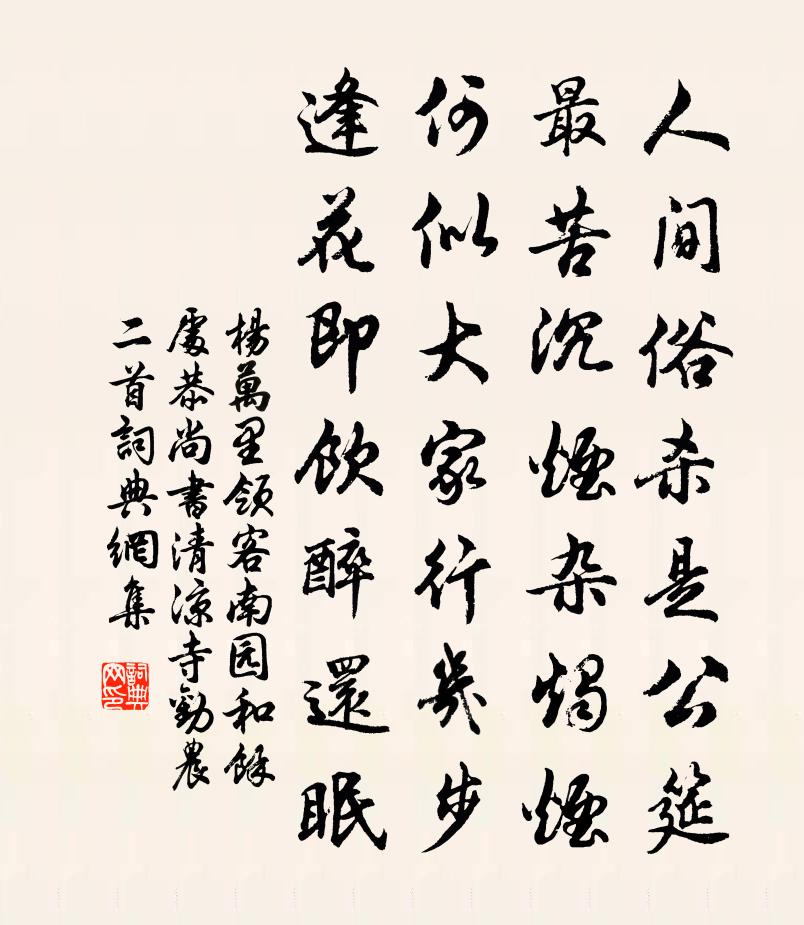 人间俗杀是公筵
最苦沉烟杂烛烟
何似大家行几步
逢花即饮醉還眠
楊萬里领客南园和餘
處恭尚書清凉寺勸農
二首詞典網集
詞典
网印